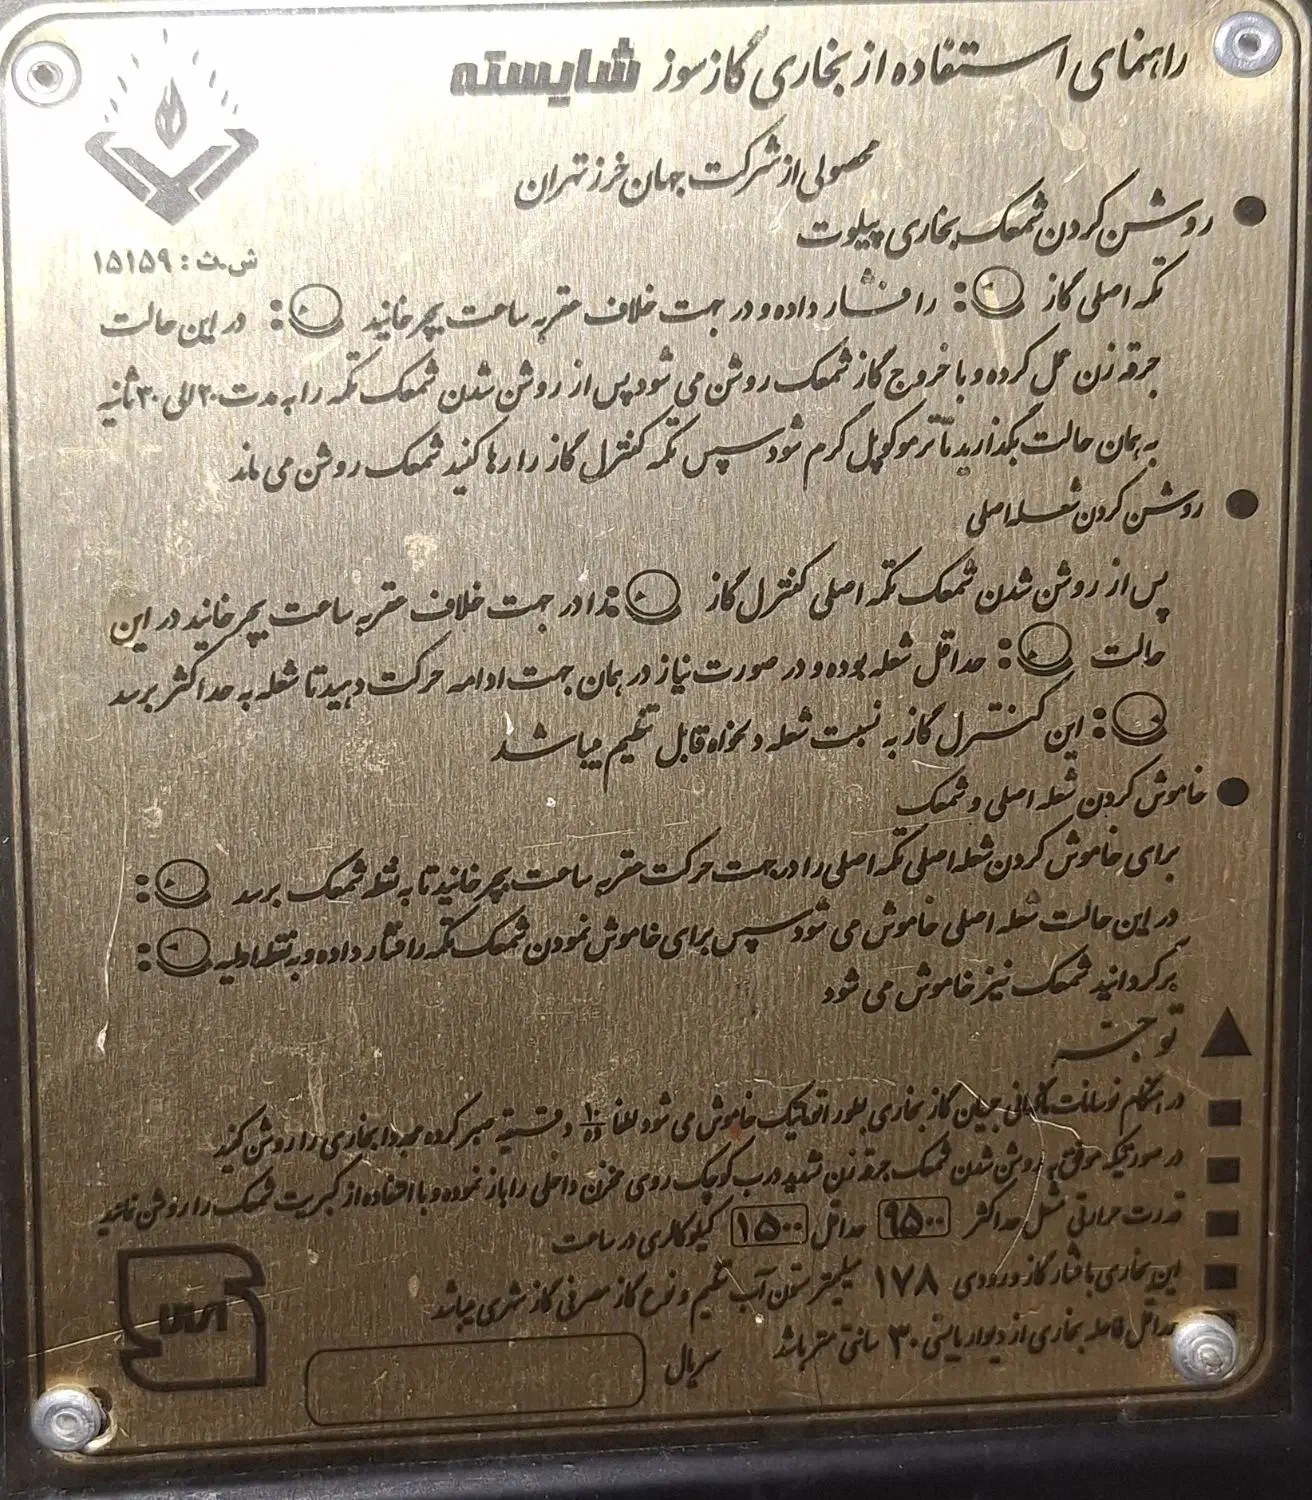 راهنمای استفاده از بخاری گازسوز شایسته
محصولی از شرکت جهان خرز تهران
ش.ث : ۱۵۱۵۹
روشن کردن شمعک بخاری پیلوت
تکمه اصلی گاز : را فشار داده و در جهت خلاف عقربه ساعت بچرخانید : در این حالت
جرقه زن عمل کرده و با خروج گاز شمعک روشن می شود پس از روشن شدن شمعک تکمه را به مدت ۲۰ الی ۳۰ ثانیه
به همان حالت بگذارید تا ترموکوپل گرم شود سپس تکمه کنترل گاز را رها کنید شمعک روشن می ماند
روشن کردن شعله اصلی
پس از روشن شدن شمعک تکمه اصلی کنترل گاز : را در جهت خلاف عقربه ساعت بچرخانید در این
حالت : حداقل شعله بوده و در صورت نیاز در همان جهت ادامه حرکت دهید تا شعله به حداکثر برسد
: این کنترل گاز به نسبت شعله دلخواه قابل تنظیم میباشد
خاموش کردن شعله اصلی و شمعک
برای خاموش کردن شعله اصلی تکمه اصلی را در جهت حرکت عقربه ساعت بچرخانید تا به نقطه شمعک برسد :
در این حالت شعله اصلی خاموش می شود سپس برای خاموش نمودن شمعک تکمه را فشار داده و به نقطه اولیه :
برگردانید شمعک نیز خاموش می شود
توجه
در هنگام نوسانات ناگهانی جریان گاز بخاری بطور اتوماتیک خاموش می شود لطفا ۱۰ ده دقیقه صبر کرده مجددا بخاری را روشن کنید
در صورتیکه موفق به روشن شدن شمعک جرقه زن نشدید درب کوچک روی مخزن داخلی را باز نموده و با استفاده از کبریت شمعک را روشن نمائید
قدرت حرارتی مشعل حداکثر ۹۵۰۰ حداقل ۱۵۰۰ کیلوکالری در ساعت
این بخاری با فشار گاز ورودی ۱۷۸ میلیمتر ستون آب تنظیم و نوع گاز مصرفی گاز شهری میباشد
حداقل فاصله بخاری از دیوار بایستی ۳۰ سانتی متر باشد
سریال